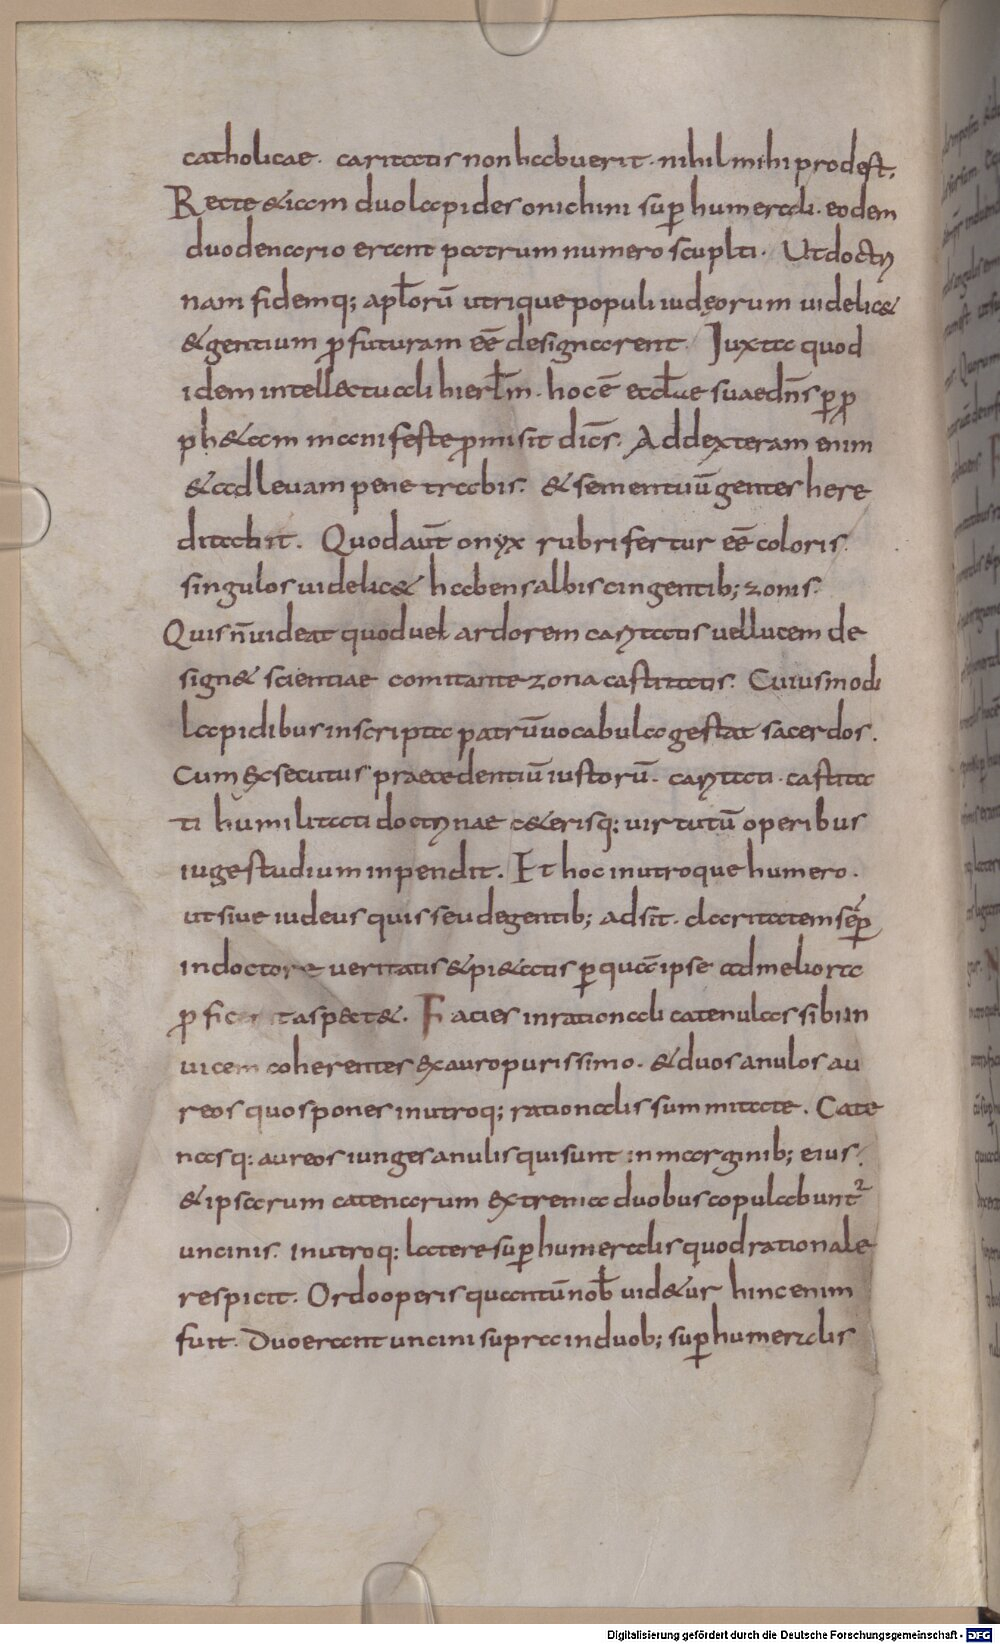 catholicae. caritatis non habuerit. nihil mihi prodest.
Recte & iam duo lapides onichini sup̄ humerali. eodem
duodenario erant patrum numero sculpti. Ut doctri
nam fidemq; apl̄orū utrique populi iudęorum uidelic&
& gentium ꝓfuturam eē designarent. Iuxta quod
idem intellectuali hierl̄m. hoc ē eccl̄iae suae dn̄s ꝑ ꝓ
ph&am manifeste ꝓmisit dicēs. Ad dexteram enim
& ad leuam penetrabis. & semen tuū gentes here
ditabit. Quod aūt onyx rubri fertur eē coloris.
singulos uidelic& habens albis cingentib; zonis.
Quis n̄ uideat quod uel ardorem caritatis uel lucem de
sign& scientiae comitante zona castitatis. Cuiusmodi
lapidibus inscripta patrū uocabula gestat sacerdos.
Cum exsecutus praecedentiū iustorū. caritati. castita
ti humilitati doctrinae c&erisq; uirtutū operibus
iuge studium inpendit. Et hoc in utroque humero.
ut siue iudeus quis seu de gentib; adsit. claritatem sēp̄
in doctore ueritatis & pi&atis ꝑ quā ipse ad meliora
ꝓficiat aspect&. Facies in rationali catenulas sibi in
uicem coherentes ex auro purissimo. & duos anulos au
reos quos pones in utroq; rationalis summitate. Cate
nasq; aureos iunges anulis qui sunt in marginib; eius.
& ipsarum catenarum extrema duobus copulabunt²
uncinis. in utroq; latere sup̄humeralis quod rationale
respicit. Ordo operis quantū nob̄ uid&ur hinc enim
fuit. Duo erant uncini supra in duob; sup̄humeralis
Digitalisierung gefördert durch die Deutsche Forschungsgemeinschaft - DFG